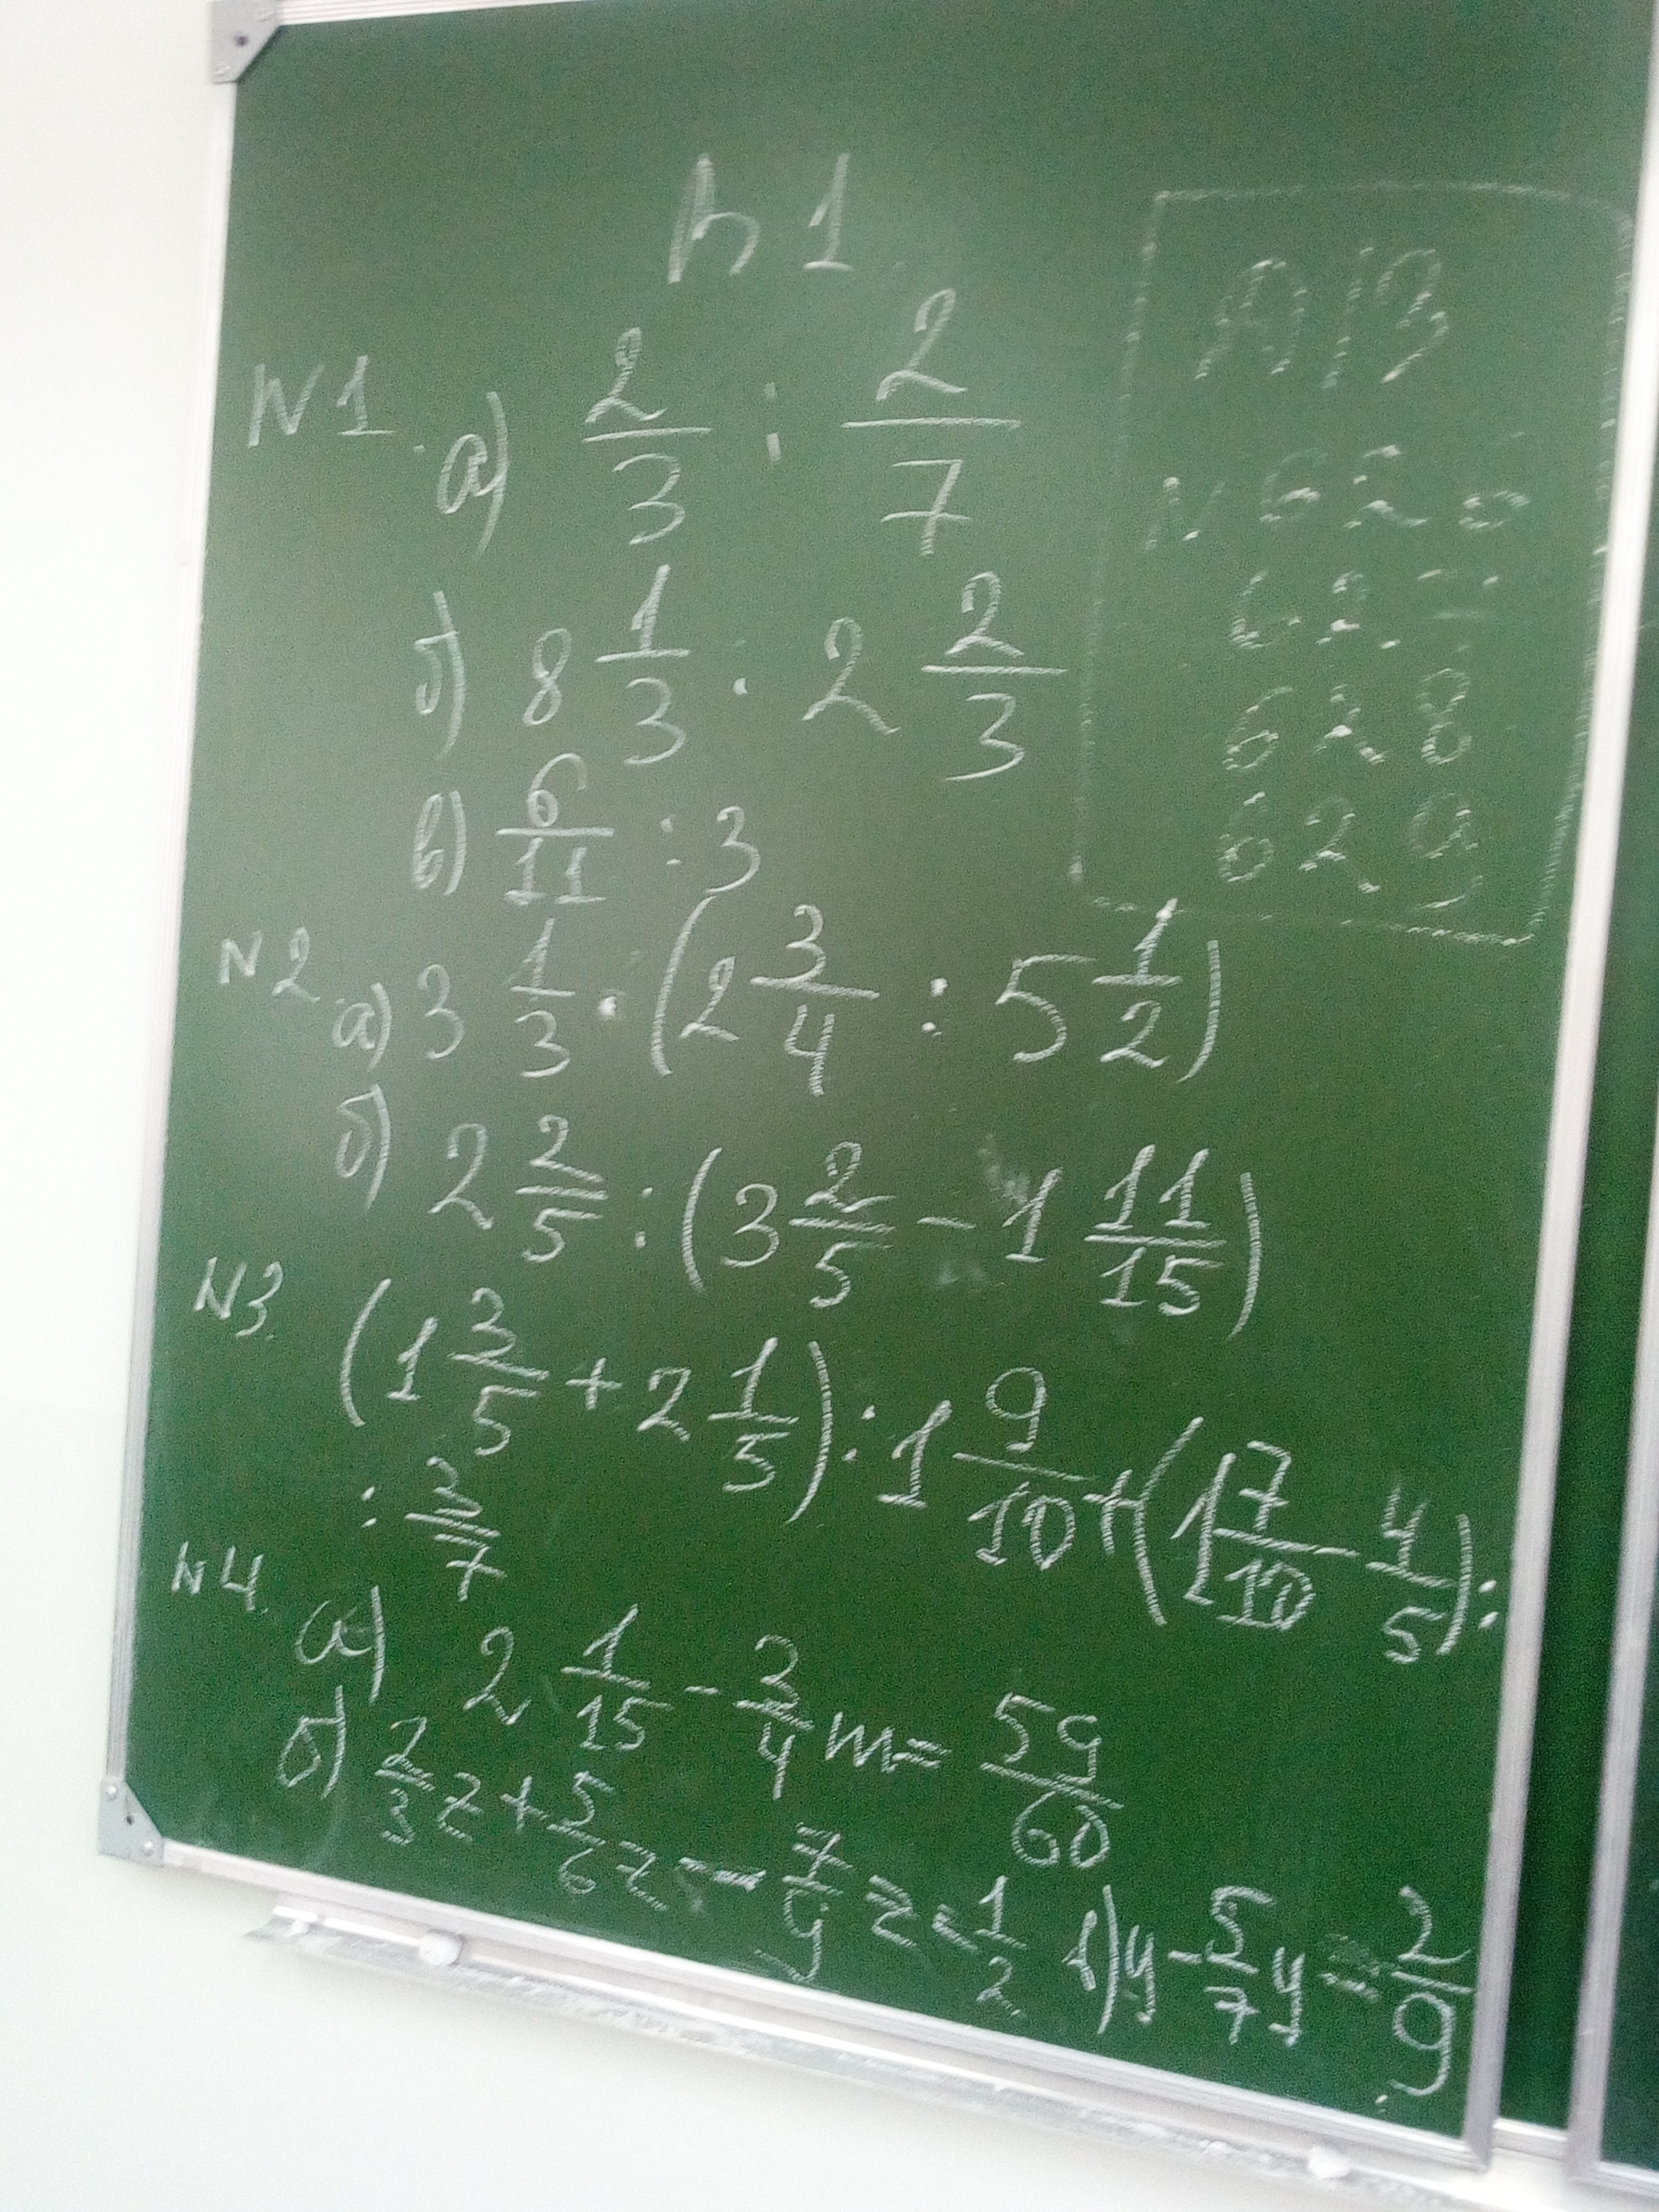 h 1
N1. а) 2/3 : 2/7
б) 8 1/3 · 2 2/3
в) 6/11 : 3
N2 а) 3 1/3 · (2 3/4 : 5 1/2)
б) 2 2/5 : (3 2/5 - 1 11/15)
N3. (1 3/5 + 2 1/5) : 1 9/10 + (1 7/10 - 4/5) :
: 3/7
N4. а) 2 1/15 - 3/4 m = 59/60
б) 2/3 z + 5/6 z - 7/9 z = 1/2 в) y - 5/7 y = 2/9
Д/З
N 626
627
628
629